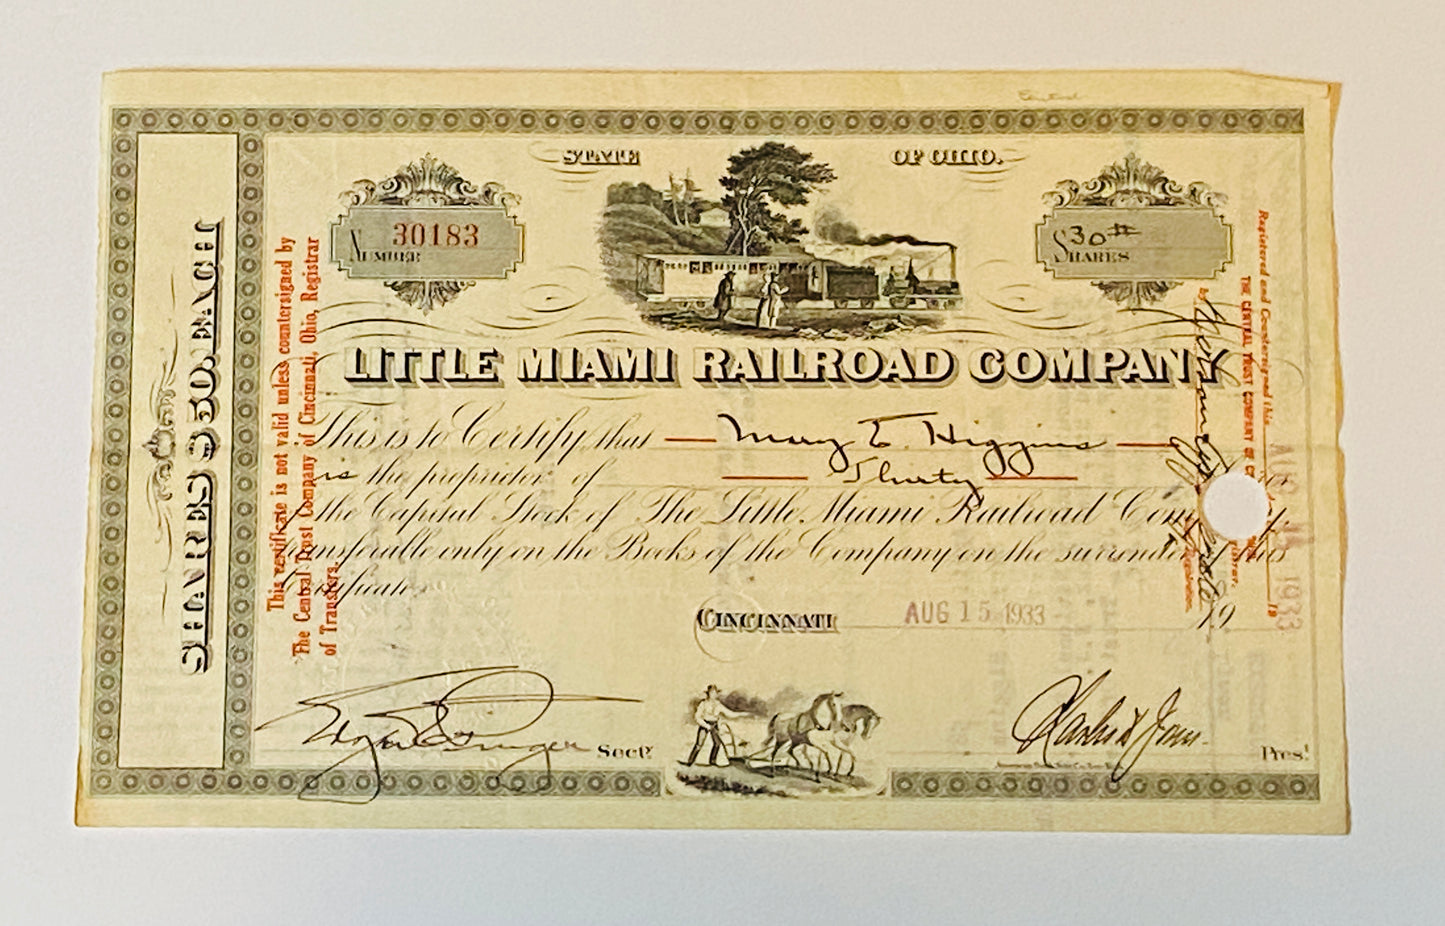 STATE OF OHIO.
NUMBER 30183
SHARES 30
SHARES $50. EACH
LITTLE MIAMI RAILROAD COMPANY
This is to Certify that Mary E Higgins
is the proprietor of Thirty
the Capital Stock of The Little Miami Railroad Com
transferable only on the Books of the Company on the surrender of this
Certificate.
CINCINNATI AUG 15 1933 19
Secty.
Prest.
This certificate is not valid unless countersigned by
The Central Trust Company of Cincinnati, Ohio, Registrar
of Transfers.
Registered and Countersigned this
AUG 1933
19
THE CENTRAL TRUST COMPANY OF
by